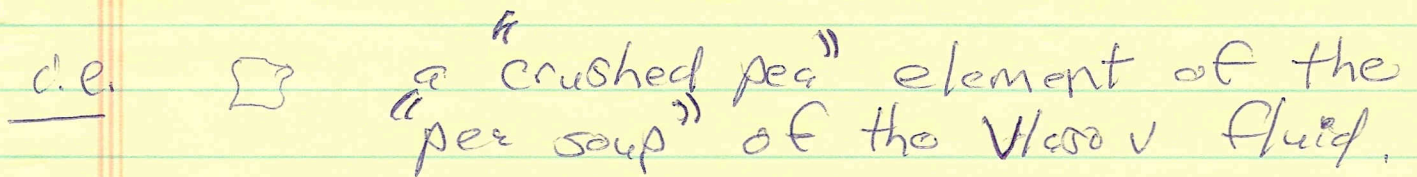 i.e. a "crushed pea" element of the
"pea soup" of the Vlasov fluid.